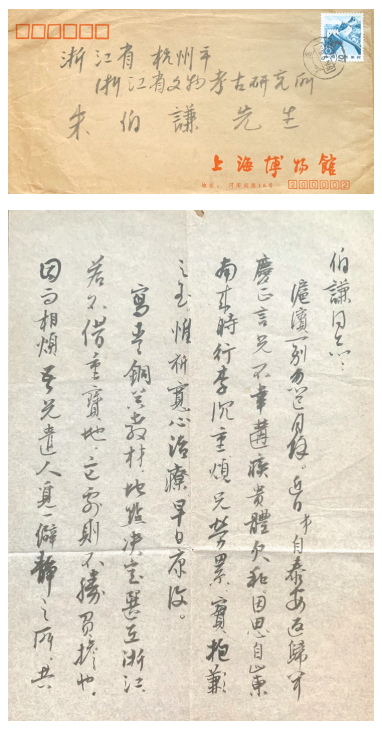 浙江省杭州市
浙江省文物考古研究所
朱伯謙先生
上海博物館
地址：河南南路16号
200002
伯謙同志：
滬濱一別忽逾月餘。近日才自泰安返歸
慶正言兄不幸遘疾貴體欠和因思自山東
南來時行李沉重煩兄勞累實抱歉
之至。惟祈寬心治療早日康復。
寫青銅器教材地點決定選在浙江
若不借重寶地
則不勝負擔也。
因而相煩吾兄遣人覓一僻靜之所，共